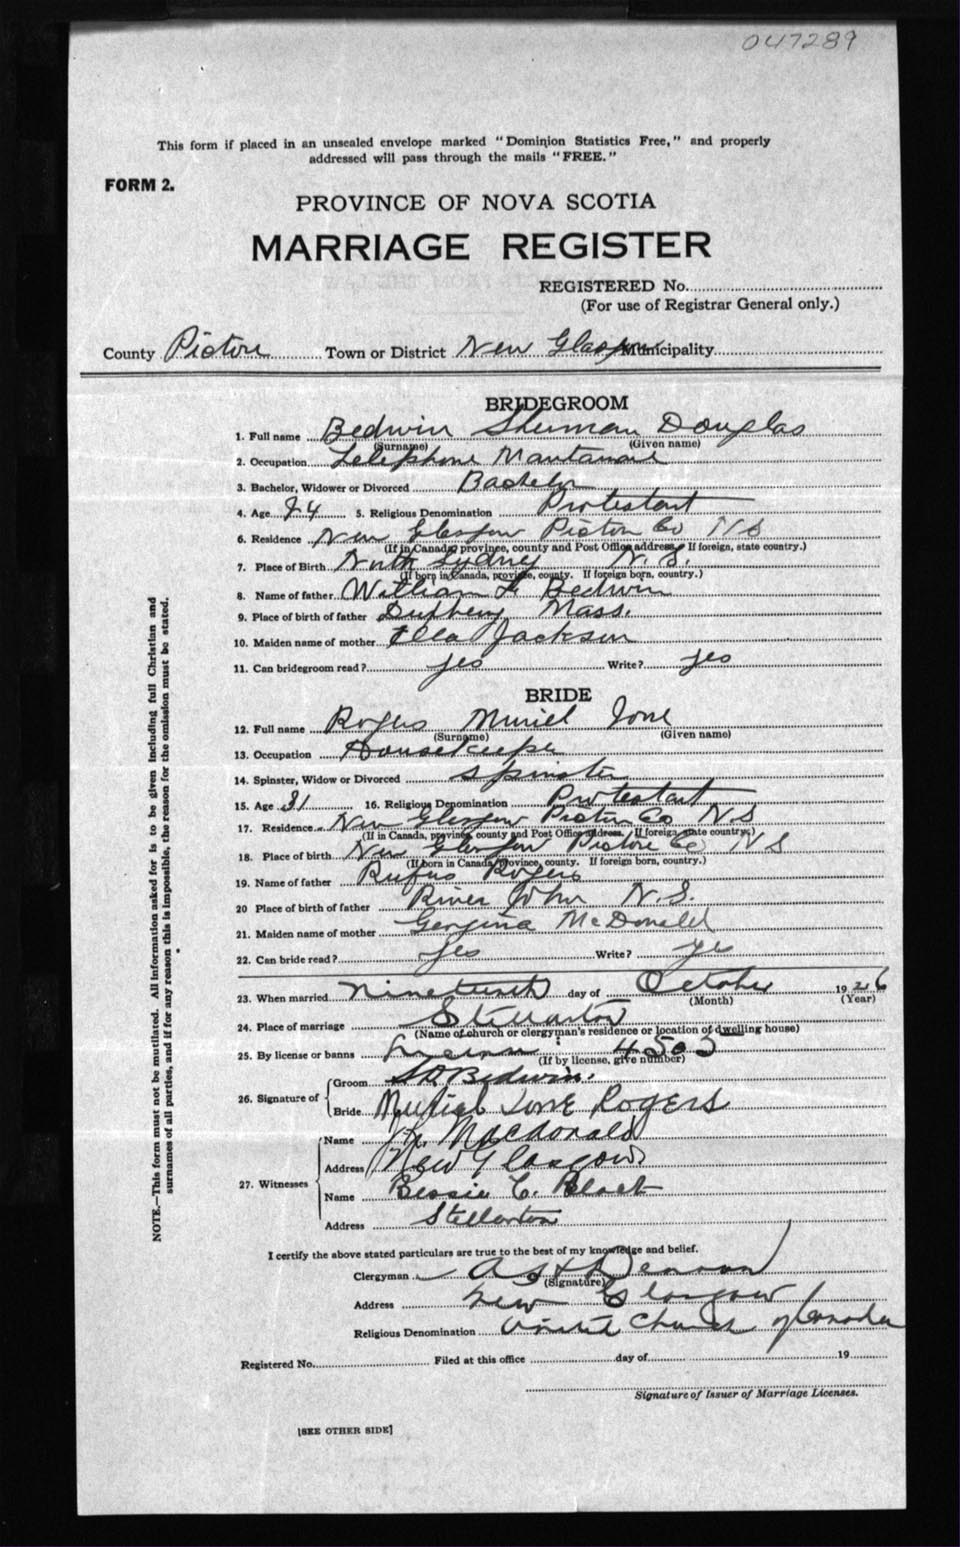 047289
This form if placed in an unsealed envelope marked "Dominion Statistics Free," and properly
addressed will pass through the mails "FREE."
FORM 2.
PROVINCE OF NOVA SCOTIA
MARRIAGE REGISTER
REGISTERED No.
(For use of Registrar General only.)
County Pictou Town or District New Glasgow Municipality
BRIDEGROOM
1. Full name Bedwin Sherman Douglas
(Surname) (Given name)
2. Occupation Telephone
3. Bachelor, Widower or Divorced Bachelor
4. Age 24 5. Religious Denomination Protestant
6. Residence New Glasgow Pictou Co N S
(If in Canada, province, county and Post Office address. If foreign, state country.)
7. Place of Birth North Sydney N. S.
(If born in Canada, province, county. If foreign born, country.)
8. Name of father William F. Bedwin
9. Place of birth of father Mass.
10. Maiden name of mother Ella Jackson
11. Can bridegroom read? yes Write? yes
BRIDE
12. Full name Rogers Muriel Ione
(Surname) (Given name)
13. Occupation Housekeeper
14. Spinster, Widow or Divorced Spinster
15. Age 31 16. Religious Denomination Protestant
17. Residence New Glasgow Pictou Co N.S
(If in Canada, province, county and Post Office address. If foreign, state country.)
18. Place of birth New Glasgow Pictou Co N S
(If born in Canada, province, county. If foreign born, country.)
19. Name of father Rufus Rogers
20 Place of birth of father River John N.S.
21. Maiden name of mother Georgina McDonald
22. Can bride read? yes Write? yes
23. When married nineteenth day of October 1926
(Month) (Year)
24. Place of marriage Stellarton
(Name of church or clergyman's residence or location of dwelling house)
25. By license or banns License 4503
(If by license, give number)
26. Signature of Groom S D Bedwin.
Bride Muriel Ione Rogers
27. Witnesses Name MacDonald
Address New Glasgow
Name Bessie C. Black
Address Stellarton
I certify the above stated particulars are true to the best of my knowledge and belief.
Clergyman
(Signature)
Address New Glasgow
Religious Denomination United Church of Canada
Registered No. Filed at this office day of 19
Signature of Issuer of Marriage Licenses.
[SEE OTHER SIDE]
NOTE.—This form must not be mutilated. All information asked for is to be given including full Christian and
surnames of all parties, and if for any reason this is impossible, the reason for the omission must be stated.